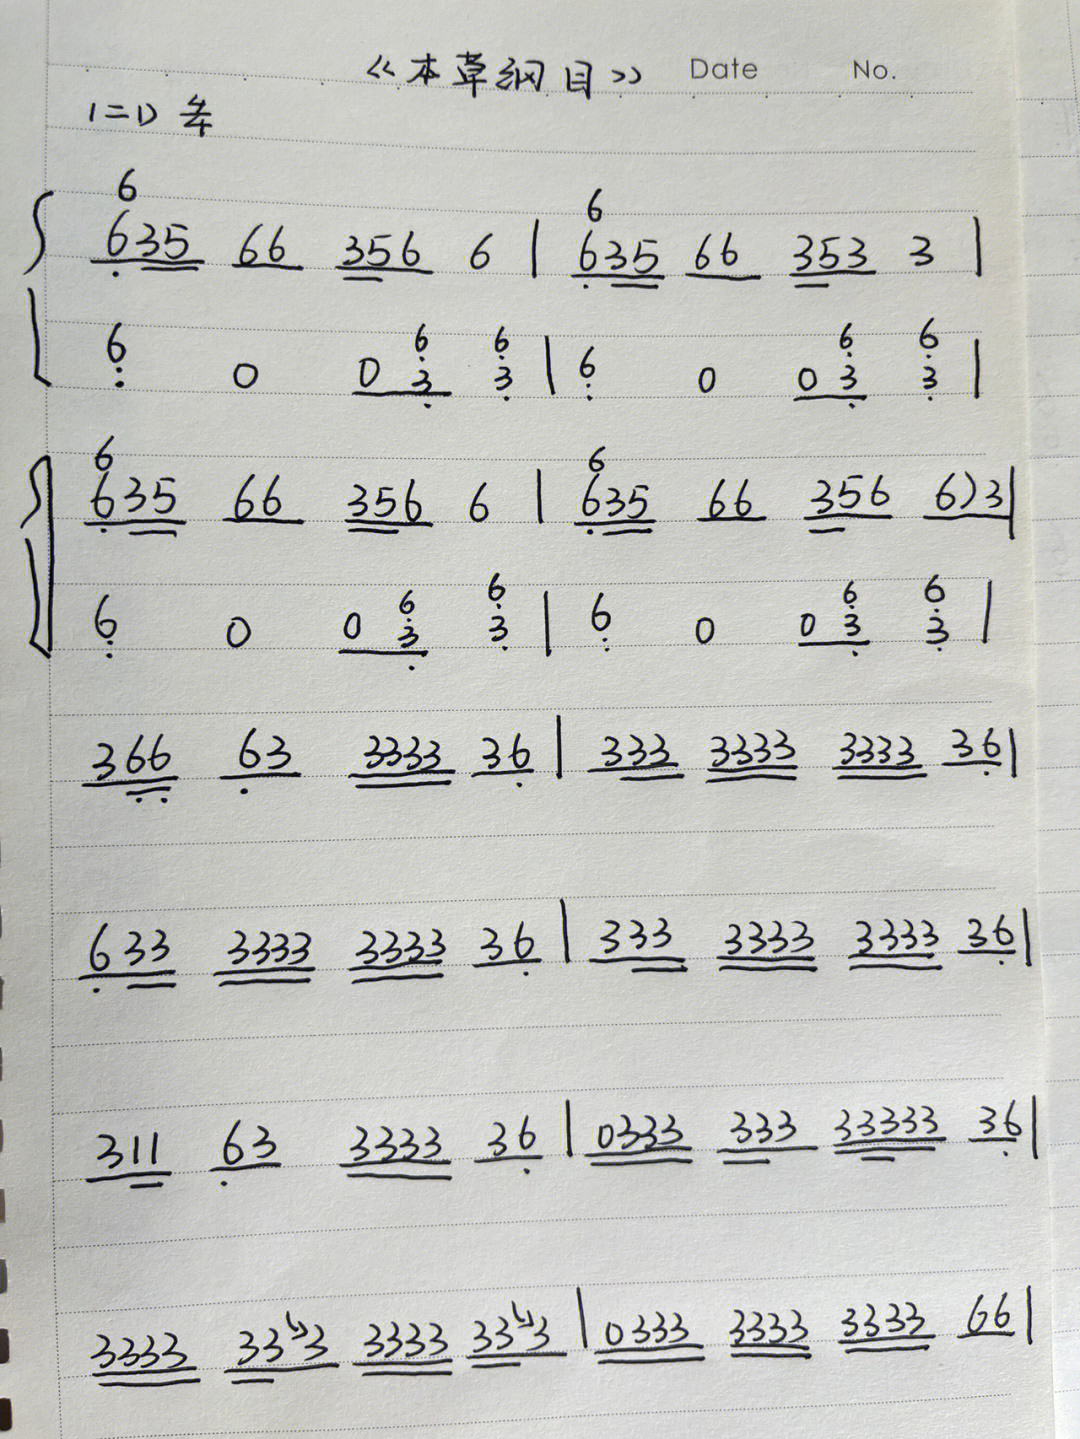 《本草纲目》 Date No.
1=D 4/4
6 6
635 66 356 6 | 635 66 353 3 |
6 6 6 6
6 0 0 3 3 | 6 0 0 3 3 |
6 6
635 66 356 6 | 635 66 356 6)3|
6 6 6 6
6 0 0 3 3 | 6 0 0 3 3 |
366 63 3333 36 | 333 3333 3333 36|
633 3333 3333 36 | 333 3333 3333 36|
311 63 3333 36 | 0333 333 33333 36|
3333 33↘3 3333 33↘3 | 0333 3333 3333 66|